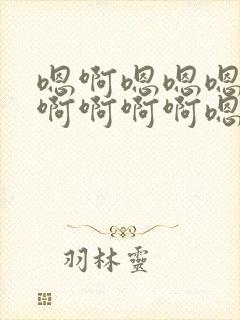 嗯啊嗯嗯嗯
啊啊啊啊嗯
羽林靈